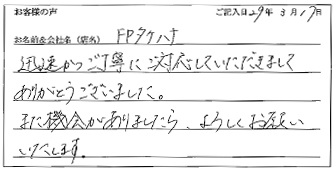 お客様の声 ご記入日 29年 3月 17日
お名前or会社名(店名) FPタケハナ
迅速かつご丁寧にご対応していただきまして
ありがとうございました。
また機会がありましたら、よろしくお願い
いたします。